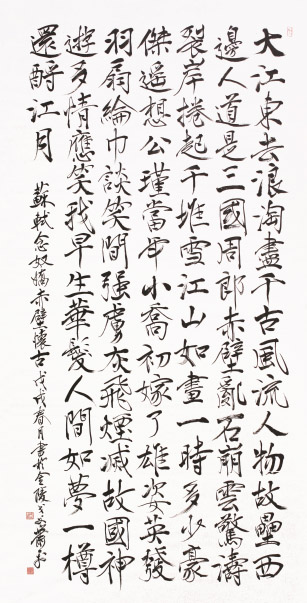 大江東去浪淘盡千古風流人物故壘西
邊人道是三國周郎赤壁亂石崩雲驚濤
裂岸捲起千堆雪江山如畫一時多少豪
傑遙想公瑾當年小喬初嫁了雄姿英發
羽扇綸巾談笑間强虜灰飛煙滅故國神
遊多情應笑我早生華髮人間如夢一樽
還酹江月
蘇軾念奴嬌赤壁懷古戊戌春月書於金陵